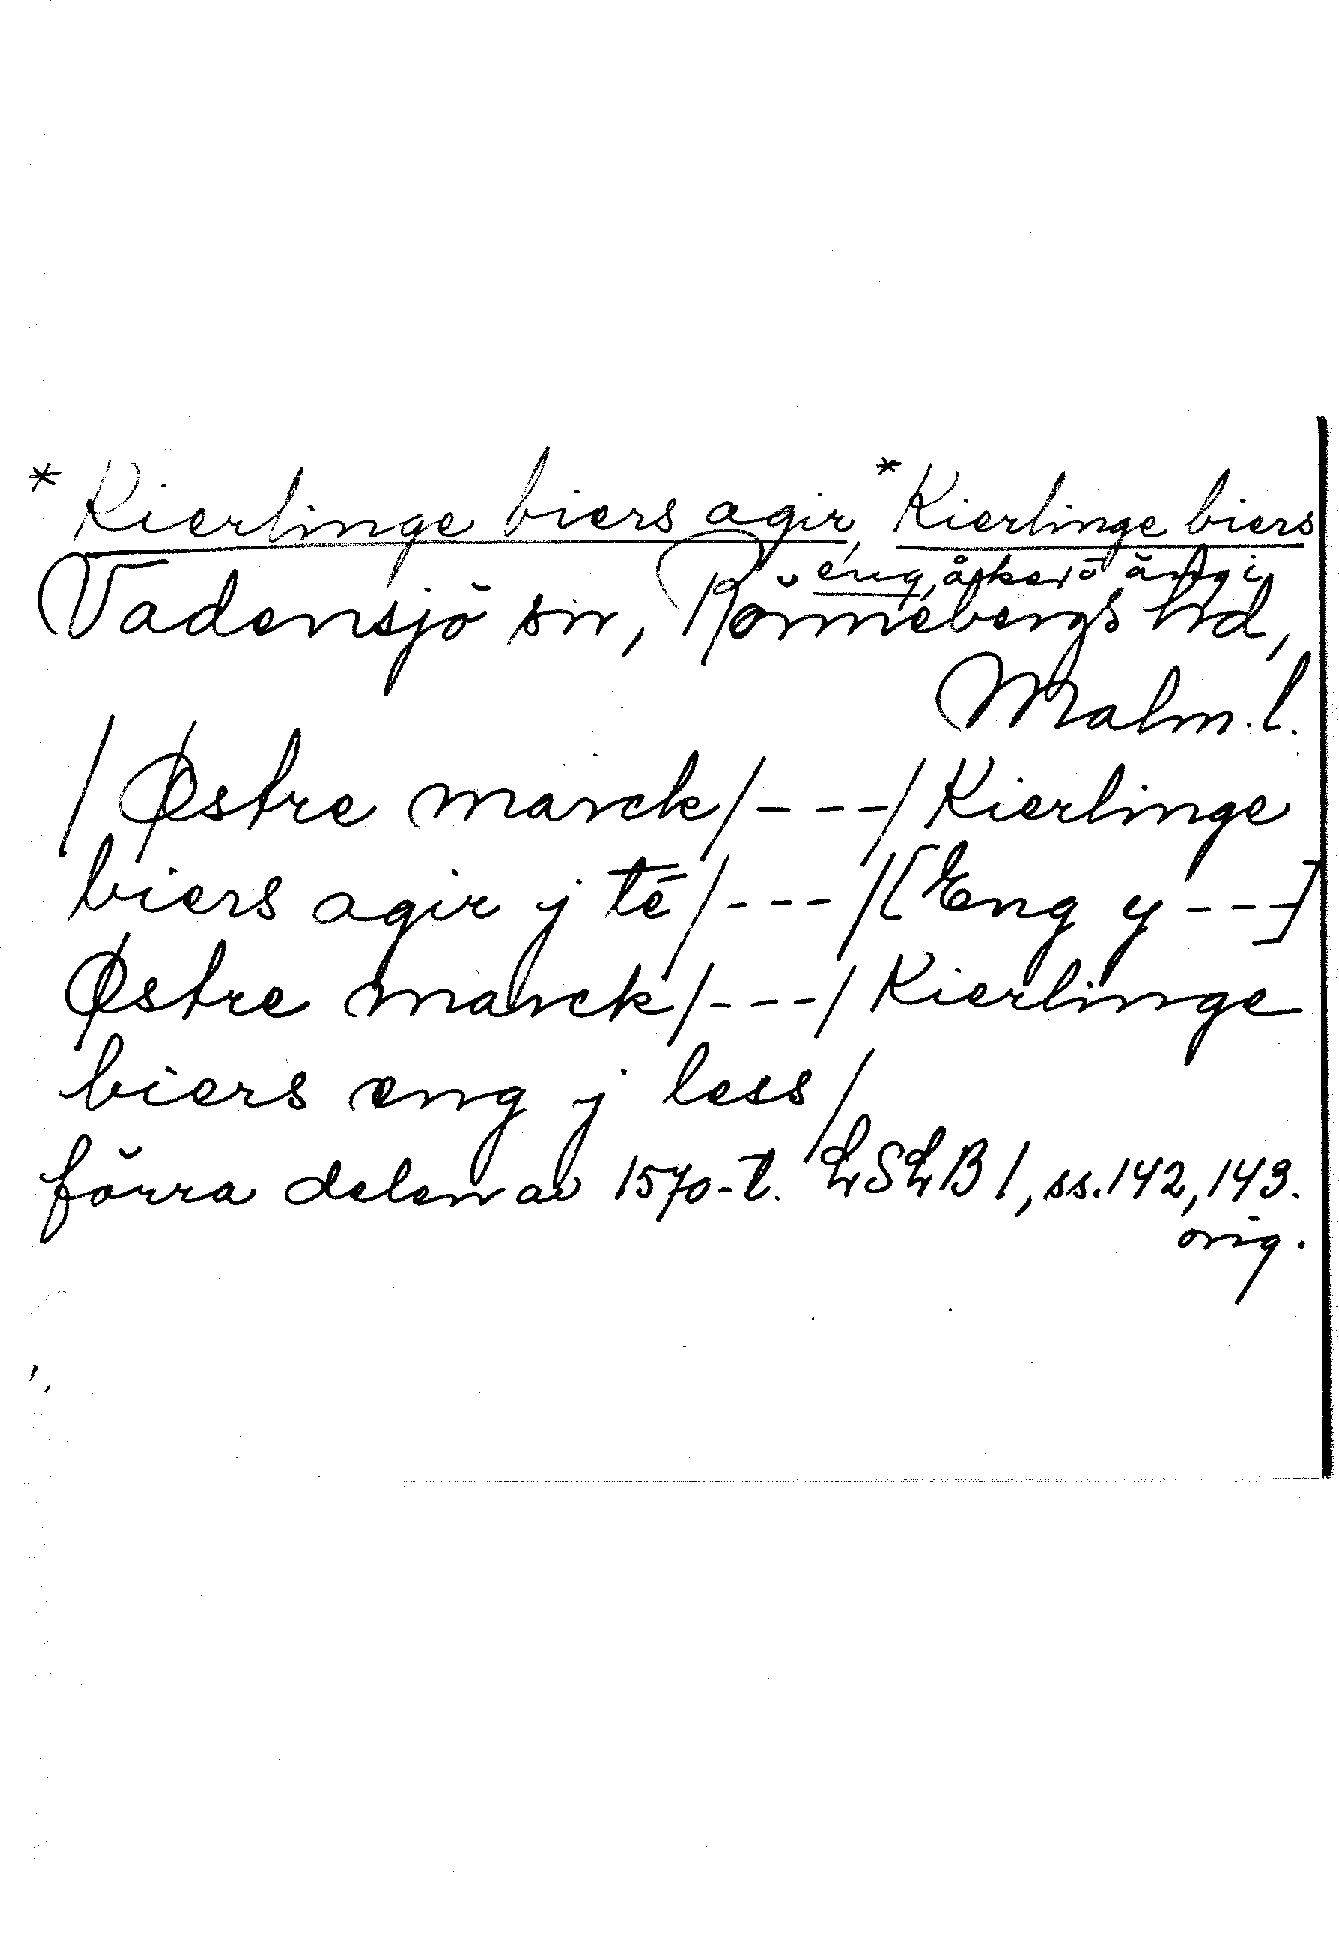 *Kierlinge biers agir, *Kierlinge biers
eng, åker o äng i
Vadensjö sn, Rönnebergs hd,
Malm. l.
/Østre marck/---/Kierlinge
biers agir j té/---/[Eng y ---]
Østre marck/---/Kierlinge
biers eng j less/
förra delen av 1570-t. LSLB 1, ss. 142, 143.
orig.